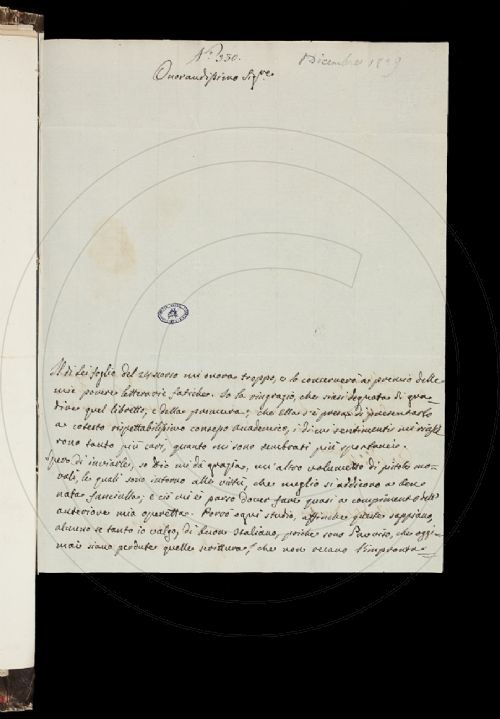 N.° 330.
Dicembre 1829
Onorandissimo Sig.re
Il di Lei foglio del 24 scorso mi onora troppo, e lo conserverò a premio delle
mie povere letterarie fatiche. Io la ringrazio, che siasi degnata di gra=
dire quel libretto, e della premura, che Ella si prese di presentarlo
a cotesto rispettabilissimo consesso Accademico, i di cui sentimenti mi
sono tanto più cari, quanto mi sono sembrati più spontanei.
Spero di inviarle, se Dio mi dà grazia, un altro volumetto di pistole mo=
rali, le quali sono intorno alle virtù, che meglio si addicono a ben
nata fanciulla; e ciò mi è parso dover fare quasi a compimento della
anteriore mia operetta. Porrò ogni studio, affinchè queste sappiano,
almeno se tanto io valgo, di buon Italiano, poichè sono d'avviso, che oggi=
mai siano perdute quelle scritture, che non recano l'impronta